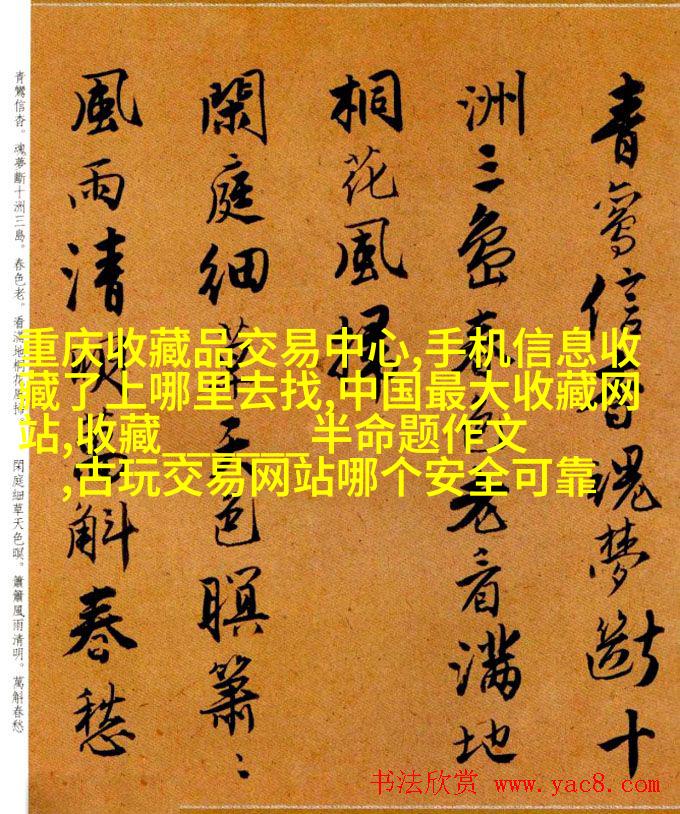 青鸞信杳魂夢斷十
洲三島春色老看滿地
桐花風掃
閑庭細草天色暝簫〻
風雨清明萬斛春愁
青鸞信杳。魂夢斷十洲三島。春色老。看滿地桐花風掃。
閑庭細草天色暝。簫簫風雨清明。萬斛春愁
重庆收藏品交易中心,手机信息收
藏了上哪里去找,中国最大收藏网
站,收藏______半命题作文
,古玩交易网站哪个安全可靠
书法欣赏 www.yac8.com